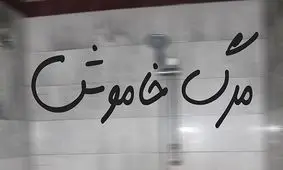 مرگ خاموش